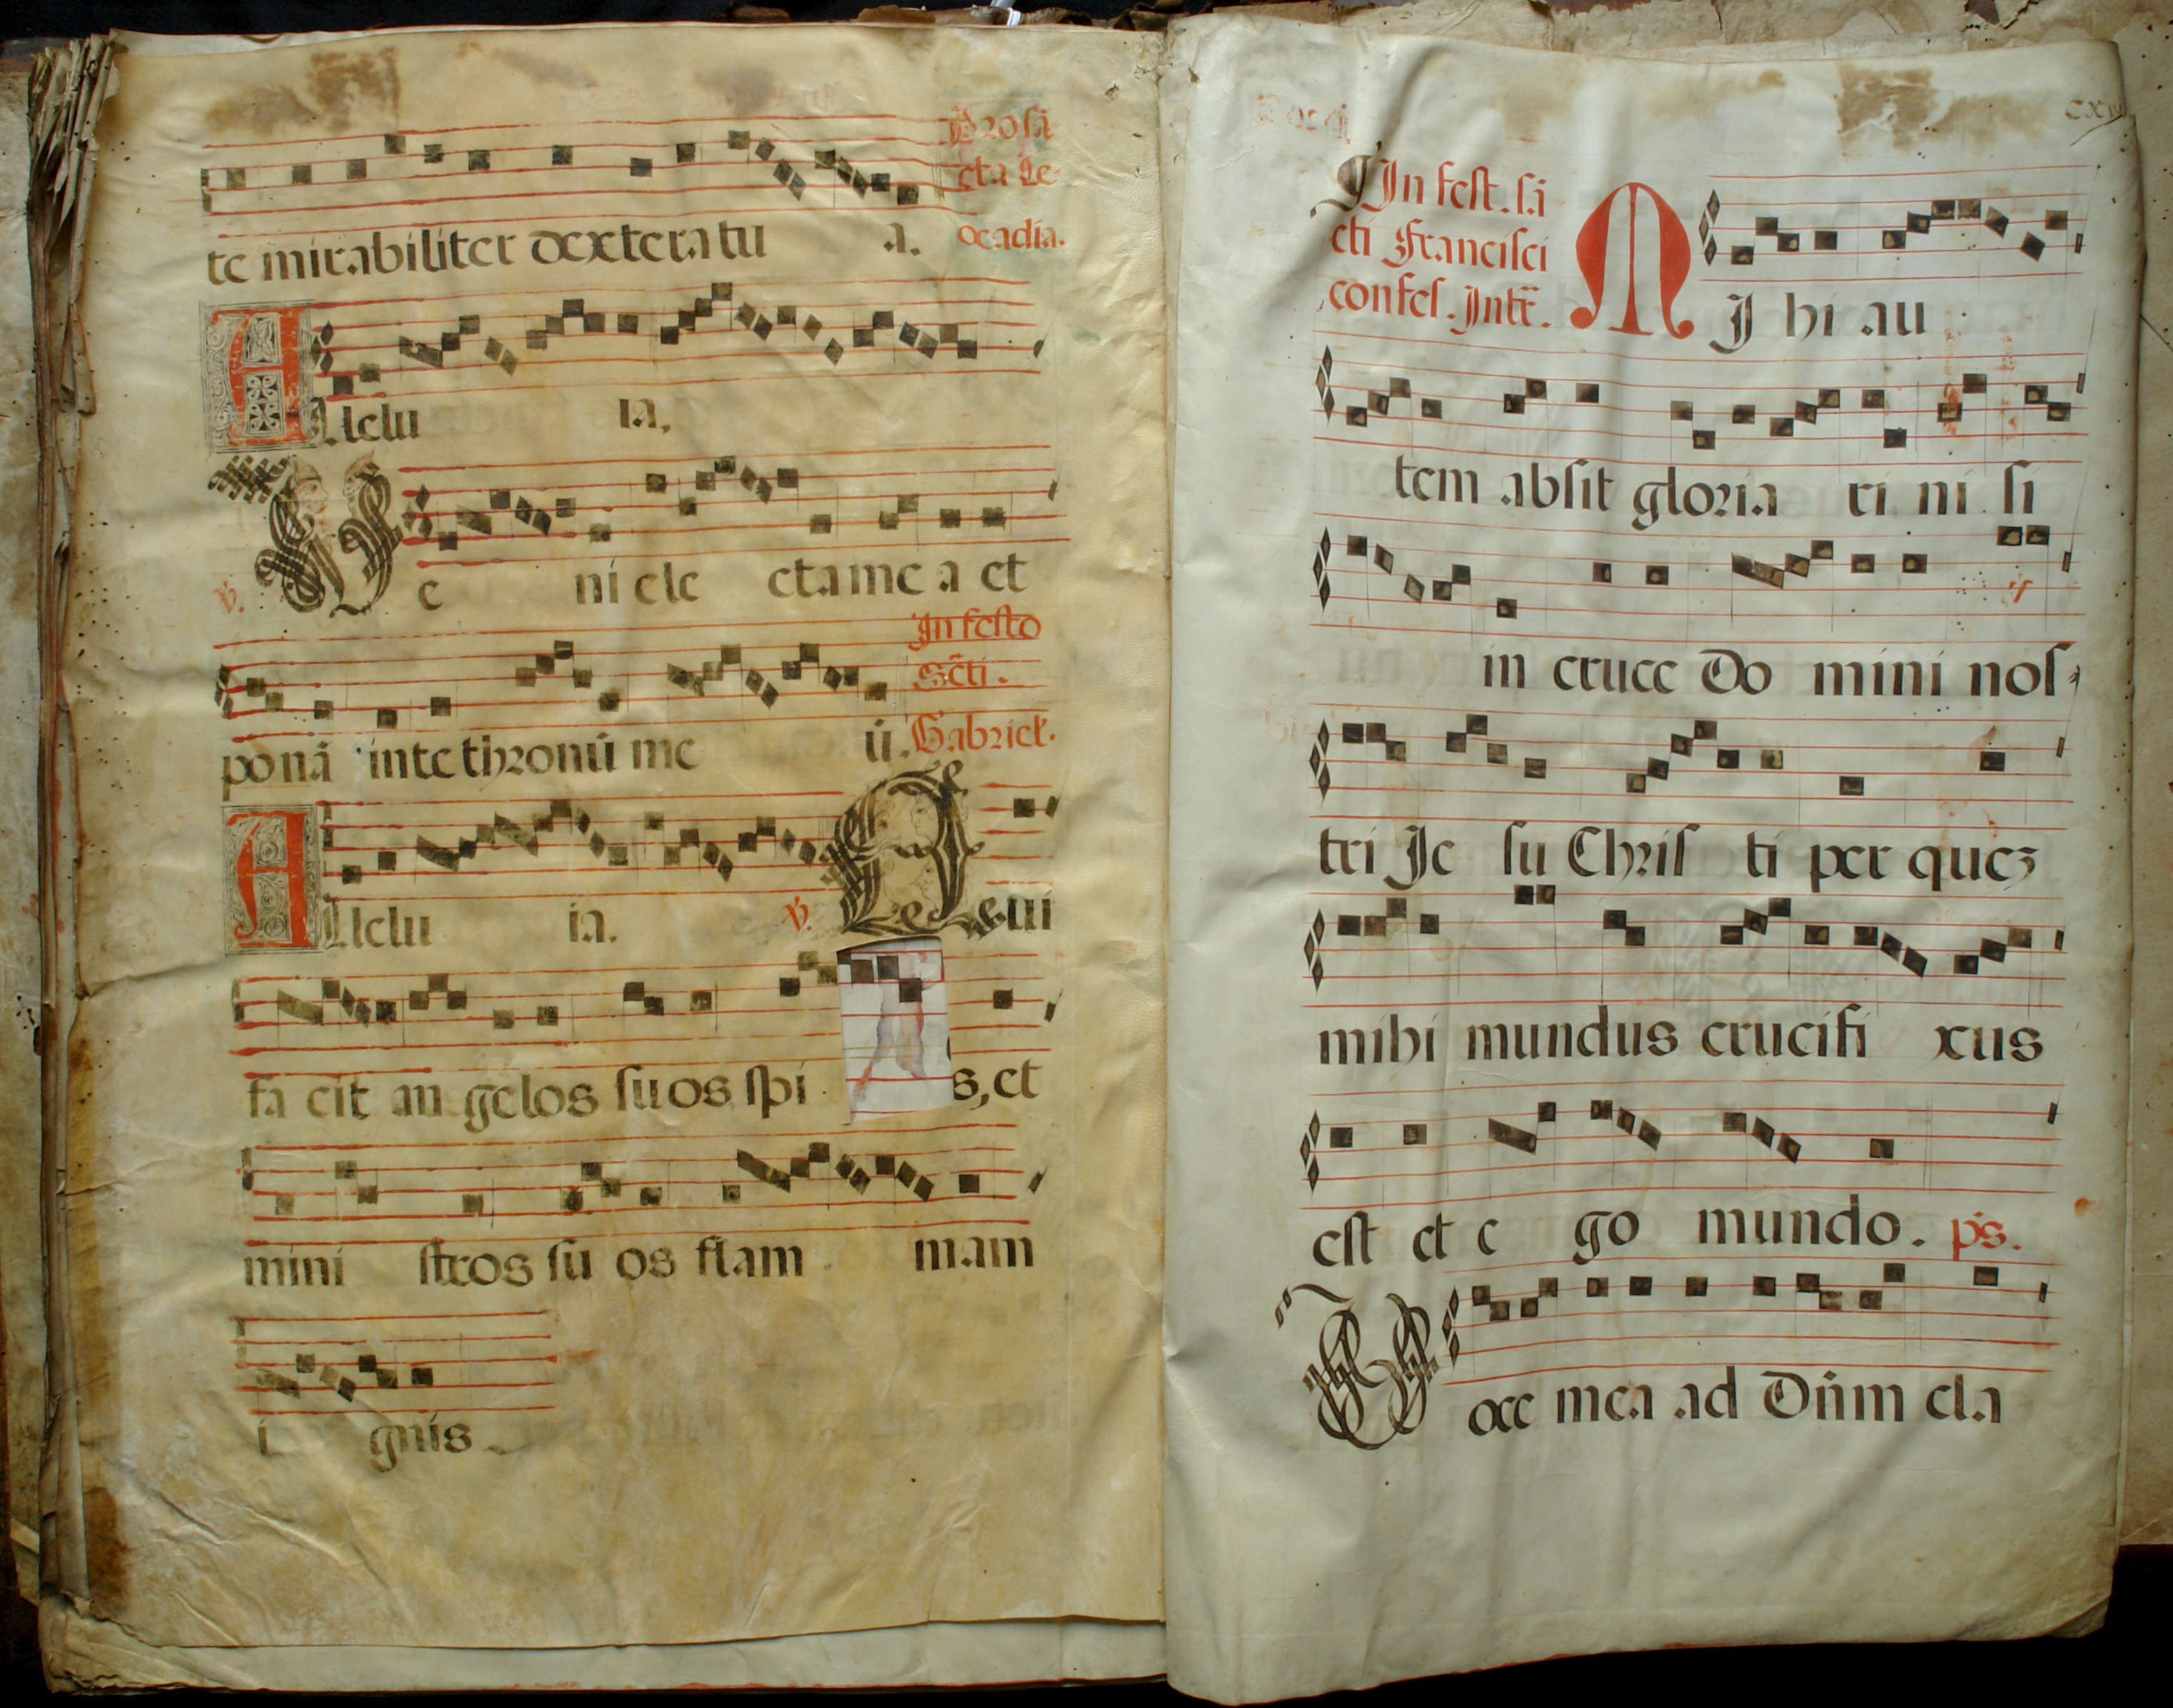 Pro sã
cta Le
ocadia.
te mirabiliter dextera tu a.
Allelu ia,
℣. Ve ni ele cta me a et
In festo
Scti.
Gabriel.
ponã in te thronũ me ũ.
Allelu ia. ℣. Qui
fa cit an gelos suos spi s, et
mini stros su os flam mam
i gnis
In fest. sã
cti Francisci
confes. Intr.
MJ hi au
tem absit gloria ri ni si
in cruce Do mini nos
tri Je su Chris ti per quez
mihi mundus crucifi xus
est et e go mundo. ps.
Voce mea ad Dñm cla